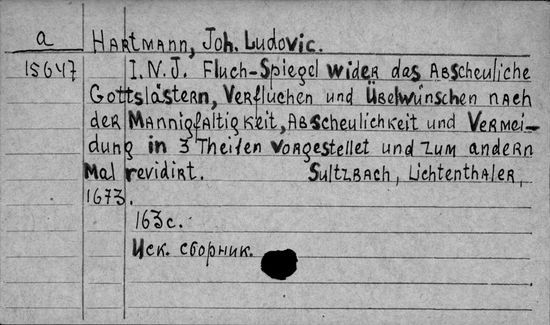 a Hartmann, Joh. Ludovic.
15647 I.N.J. Fluch-Spiegel wider das Abscheuliche
Gottslästern, Verfluchen und Übelwünschen nach
der Mannigfaltigkeit, Abscheulichkeit und Vermei-
dung in 3 Theilen vorgestellet und zum andern
Mal revidirt. Sultzbach, Lichtenthaler,
1673.
163 c.
Иск. сборник.